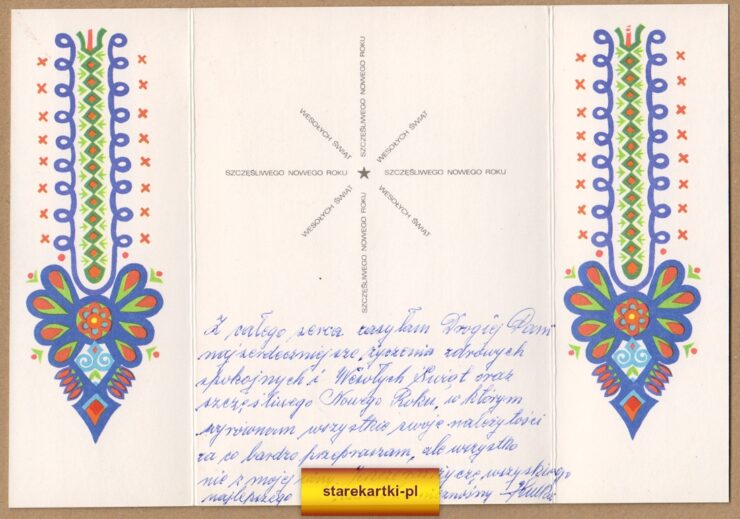 SZCZĘŚLIWEGO NOWEGO ROKU
WESOŁYCH ŚWIĄT
WESOŁYCH ŚWIĄT
SZCZĘŚLIWEGO NOWEGO ROKU
SZCZĘŚLIWEGO NOWEGO ROKU
WESOŁYCH ŚWIĄT
WESOŁYCH ŚWIĄT
SZCZĘŚLIWEGO NOWEGO ROKU
Z całego serca zasyłam Drogiej Pani
najserdeczniejsze życzenia zdrowych
spokojnych i Wesołych Świąt oraz
szczęśliwego Nowego Roku, w którym
wyrównam wszystkie swoje należytości
za co bardzo przepraszam, ale wszystko
nie z mojej życzę wszystkiego
najlepszego
starekartki-pl